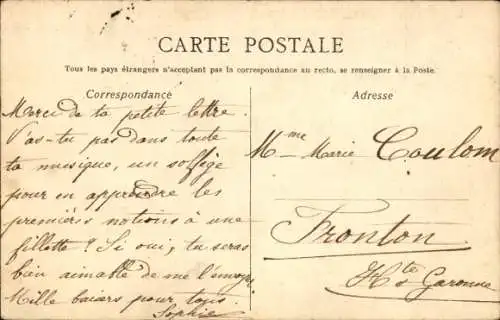 CARTE POSTALE
Tous les pays étrangers n'acceptent pas la correspondance au recto, se renseigner à la Poste.
Correspondance
Merci de ta petite lettre.
N'as-tu pas dans toute
ta musique, un solfège
pour en apprendre les
premières notions à une
fillette ? Si oui, tu seras
bien aimable de me l'envoyer
Mille baisers pour tous.
Sophie
Adresse
Mme Marie Coulom
Fronton
Hte Garonne